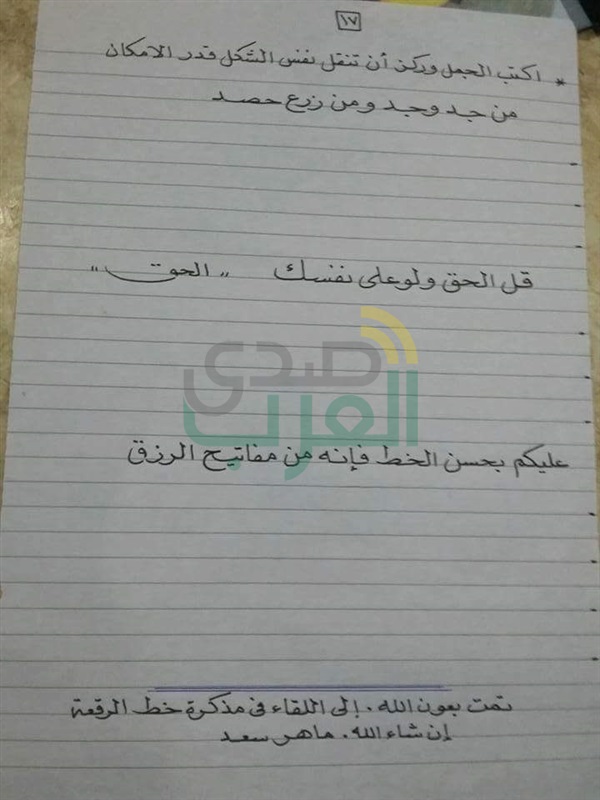 ١٧
* اكتب الجمل وركز أن تنقل نفس الشكل قدر الامكان
من جد وجد ومن زرع حصد
قل الحق ولو على نفسك " الحق "
صدى العرب
عليكم بحسن الخط فإنه من مفاتيح الرزق
تمت بعون الله. إلى اللقاء فى مذكرة خط الرقعة
إن شاء الله. ماهر سعد